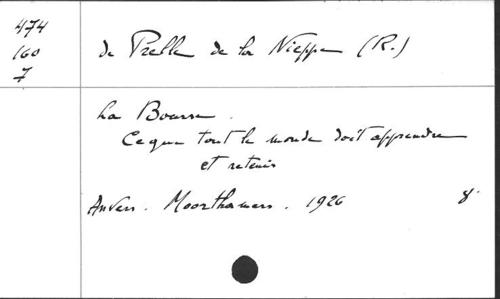 474
160
7
de Prelle de la Nieppe (R.)
La Bourse.
Ce que tout le monde doit apprendre
et retenir
Anvers. Moorthamers. 1926 8°